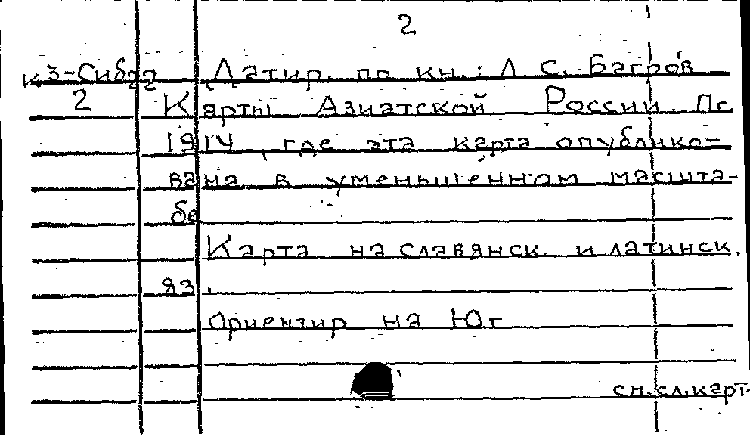 2
К3-Сиб22 Датир. по кн.: Л С. Багров
2 Карты Азиатской России. Пг
1914, где эта карта опублико-
вана в уменьшенном масшта-
бе
Карта на славянск. и латинск.
яз.
Ориентир на Юг
см.сл.карт.